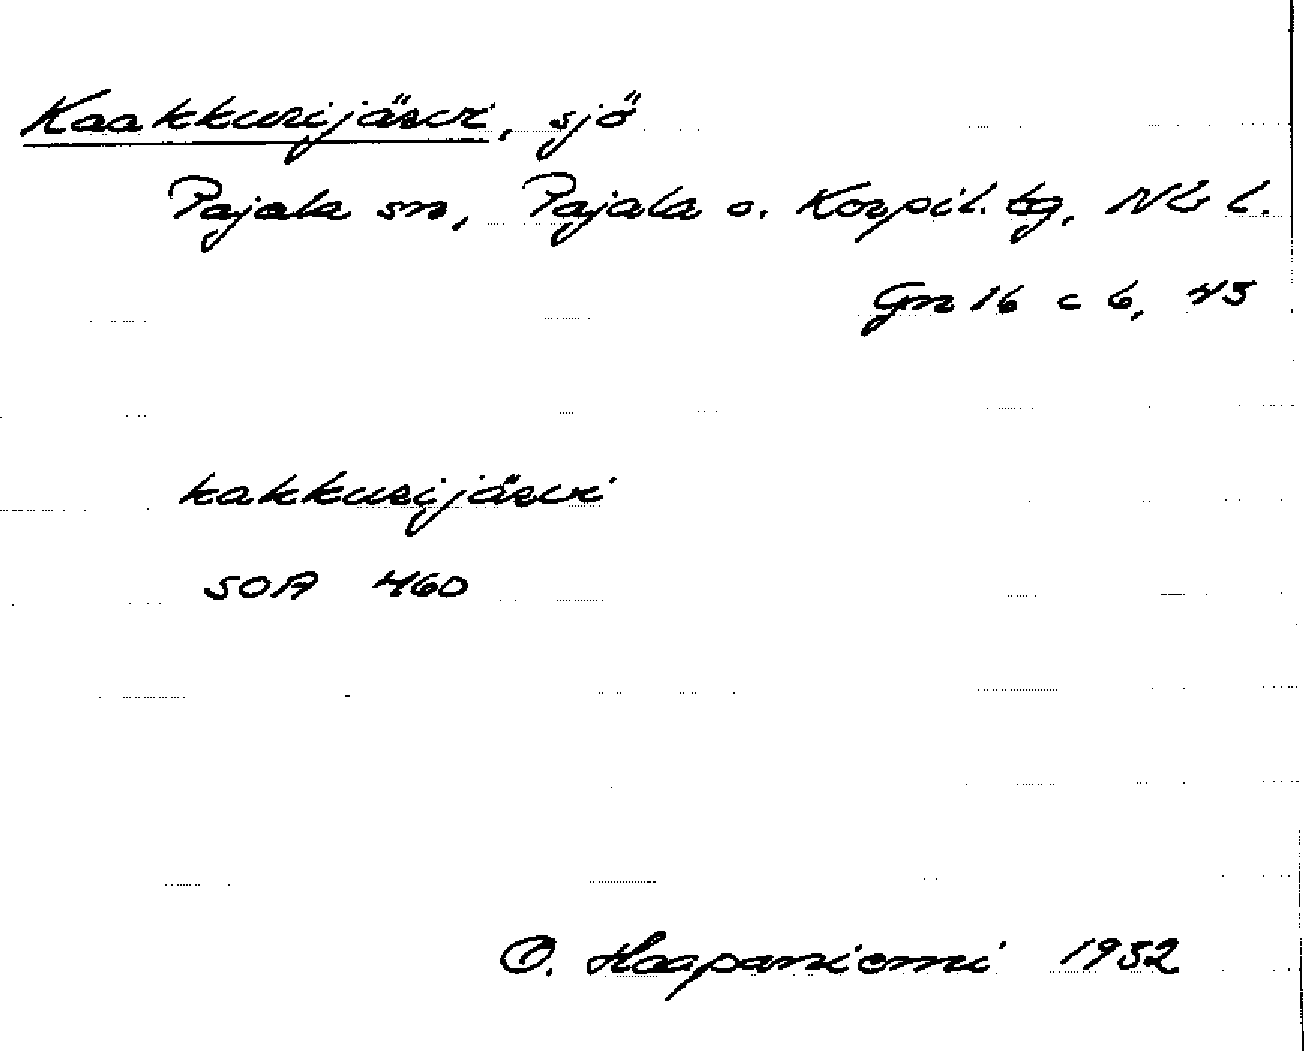 Kaakkurijärvi, sjö
Pajala sn, Pajala o. Korpil. tg, Nb l.
Gn 16 c 6, 43
kakkurijärvi
SOA 460
O. Haapaniemi 1952